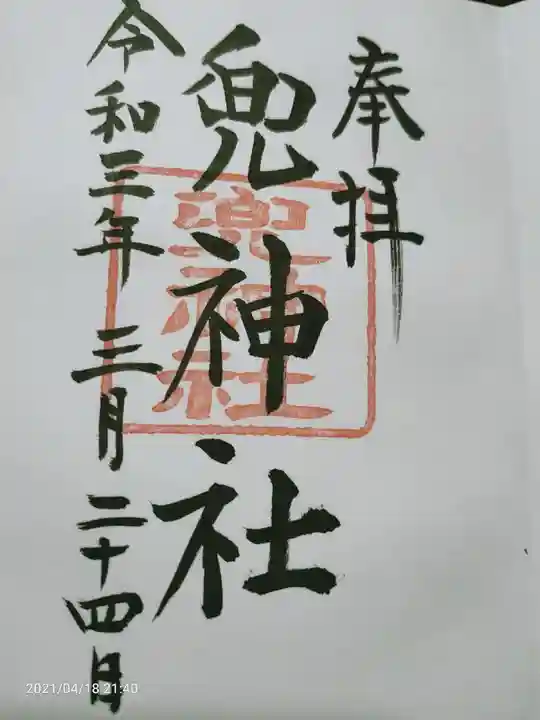 奉拝
兜神社
兜神社
令和三年 三月 二十四日
2021/04/18 21:40